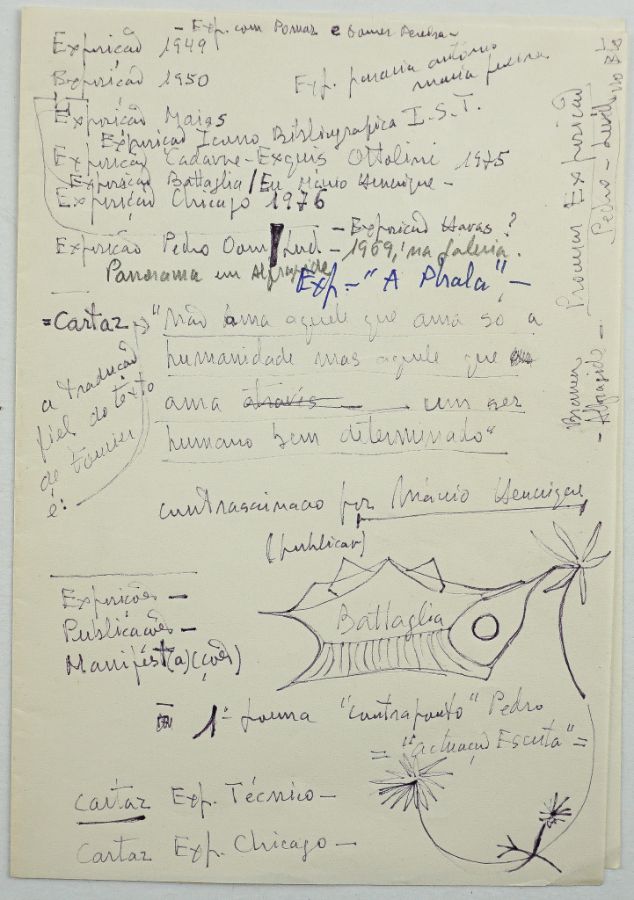 - Exp. com Pomar e
Exposição 1949
Exposição 1950
Exp. parceria António
Maria Pereira
Exposição Maias
Exposição Icono Bibliografica I.S.T.
Exposição Cadavre-Exquis Ottolini 1975
Exposição Battaglia/Eu, Mário Henrique -
Exposição Chicago 1976
- Exposição Havas?
Exposição Pedro Oom/ - 1969, na Galeria.
Panorama em
Exp - "A Phala" -
= Cartaz "não ama aquele que ama só a
humanidade mas aquele que
ama através um ser
humano bem determinado"
a tradução
fiel do texto
de Fourier
é:
contrassinado por Mário Henrique
(publicar)
Exposições -
Publicações -
Manifest(a)(ções)
Battaglia
1º poema "contraponto" Pedro
= "actuação Escrita" =
Cartaz Exp. Técnico -
Cartaz Exp. Chicago -
Procurar Exposição
Pedro -